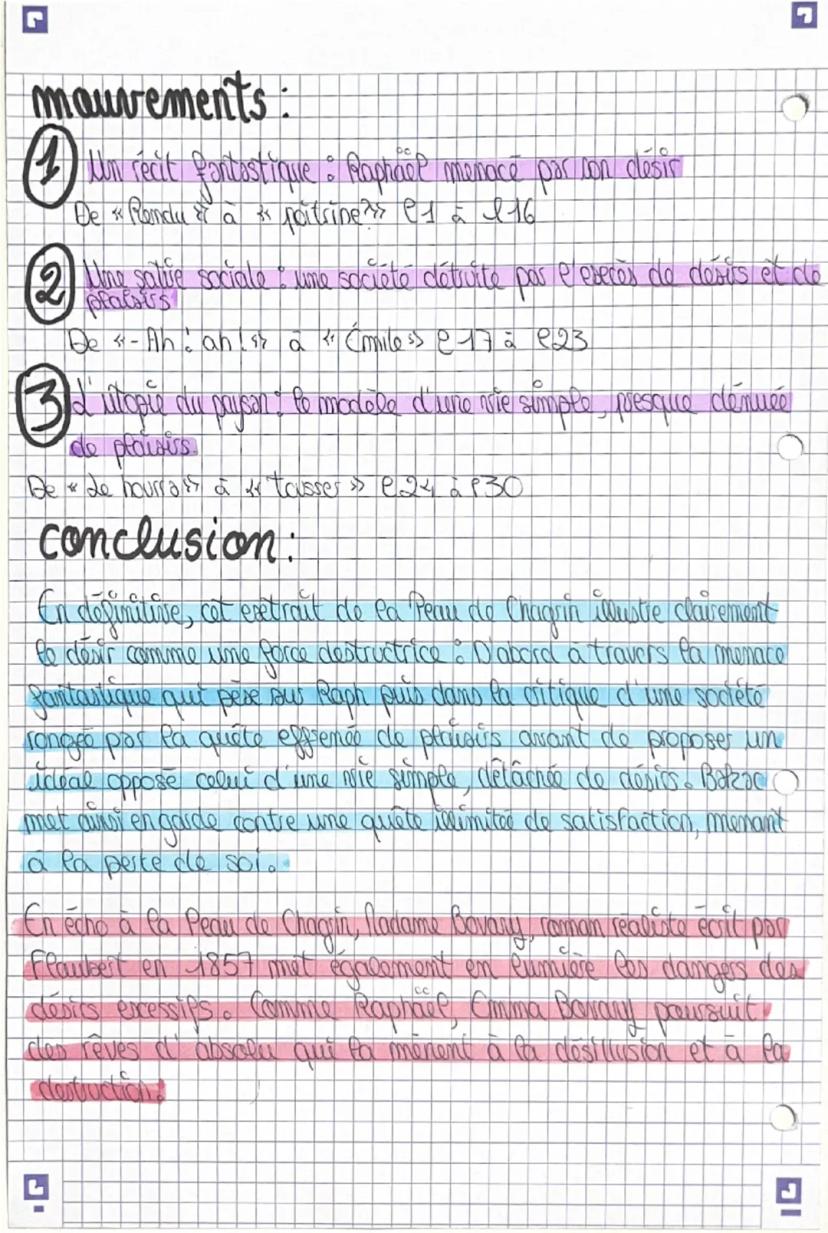 mouvements :
1 Un récit fantastique : Raphaël menacé par son désir
De « Rendu » à « poitrine? » l1 à l16
2 Une satire sociale : une société détruite par l'excès de désirs et de
plaisirs
De «-Ah ! ah ! » à « Émile » l17 à l23
3 L'utopie du paysan : le modèle d'une vie simple, presque dénuée
de plaisirs.
De « Le hourra » à « tasser » l24 à l30
conclusion :
En définitive, cet extrait de la Peau de Chagrin illustre clairement
le désir comme une force destructrice : D'abord à travers la menace
fantastique qui pèse sur Raph puis dans la critique d'une société
rongée par la quête effrenée de plaisirs avant de proposer un
idéal opposé celui d'une vie simple, détachée de désirs. Balzac
met ainsi en garde contre une quête illimitée de satisfaction, menant
à la perte de soi.
En écho à la Peau de Chagrin, Madame Bovary, roman réaliste écrit par
Flaubert en 1857 met également en lumière les dangers des
désirs excessifs. Comme Raphaël, Emma Bovary poursuit
des rêves d'absolu qui la mènent à la désillusion et à la
destruction.